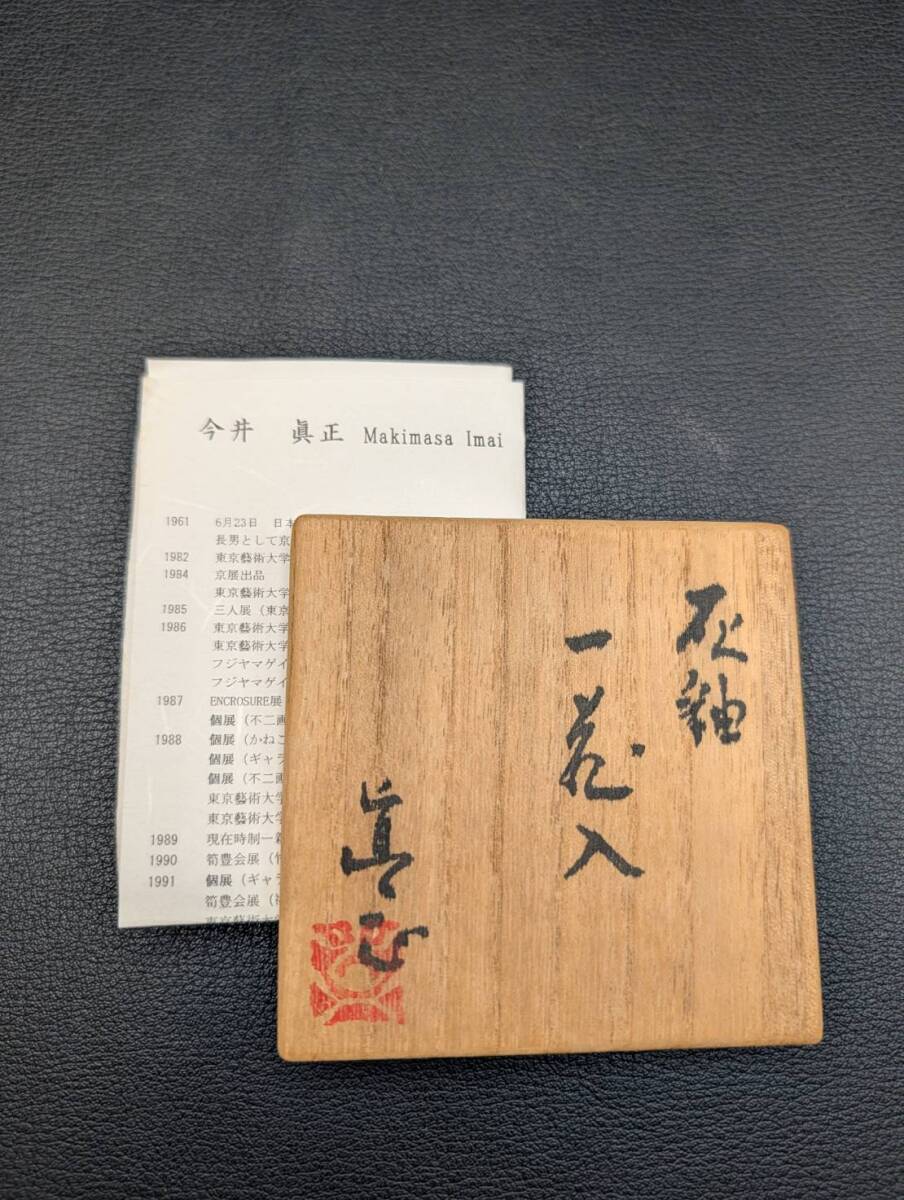 今井 眞正 Makimasa Imai
1961 6月23日 日本
長男として京
1982 東京藝術大学
1984 京展出品
東京藝術大学
1985 三人展（東京
1986 東京藝術大学
東京藝術大学
フジヤマゲイ
フジヤマゲイ
1987 ENCROSURE展
個展（不二画
1988 個展（かねこ
個展（ギャラ
個展（不二画
東京藝術大学
東京藝術大学
1989 現在時制一
1990 筍豊会展（竹
1991 個展（ギャラ
筍豊会展（
東京藝術大学
灰釉
一花入
眞正